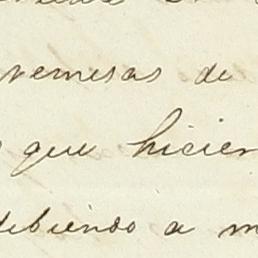 remesas de
que hicier
debiendo a m